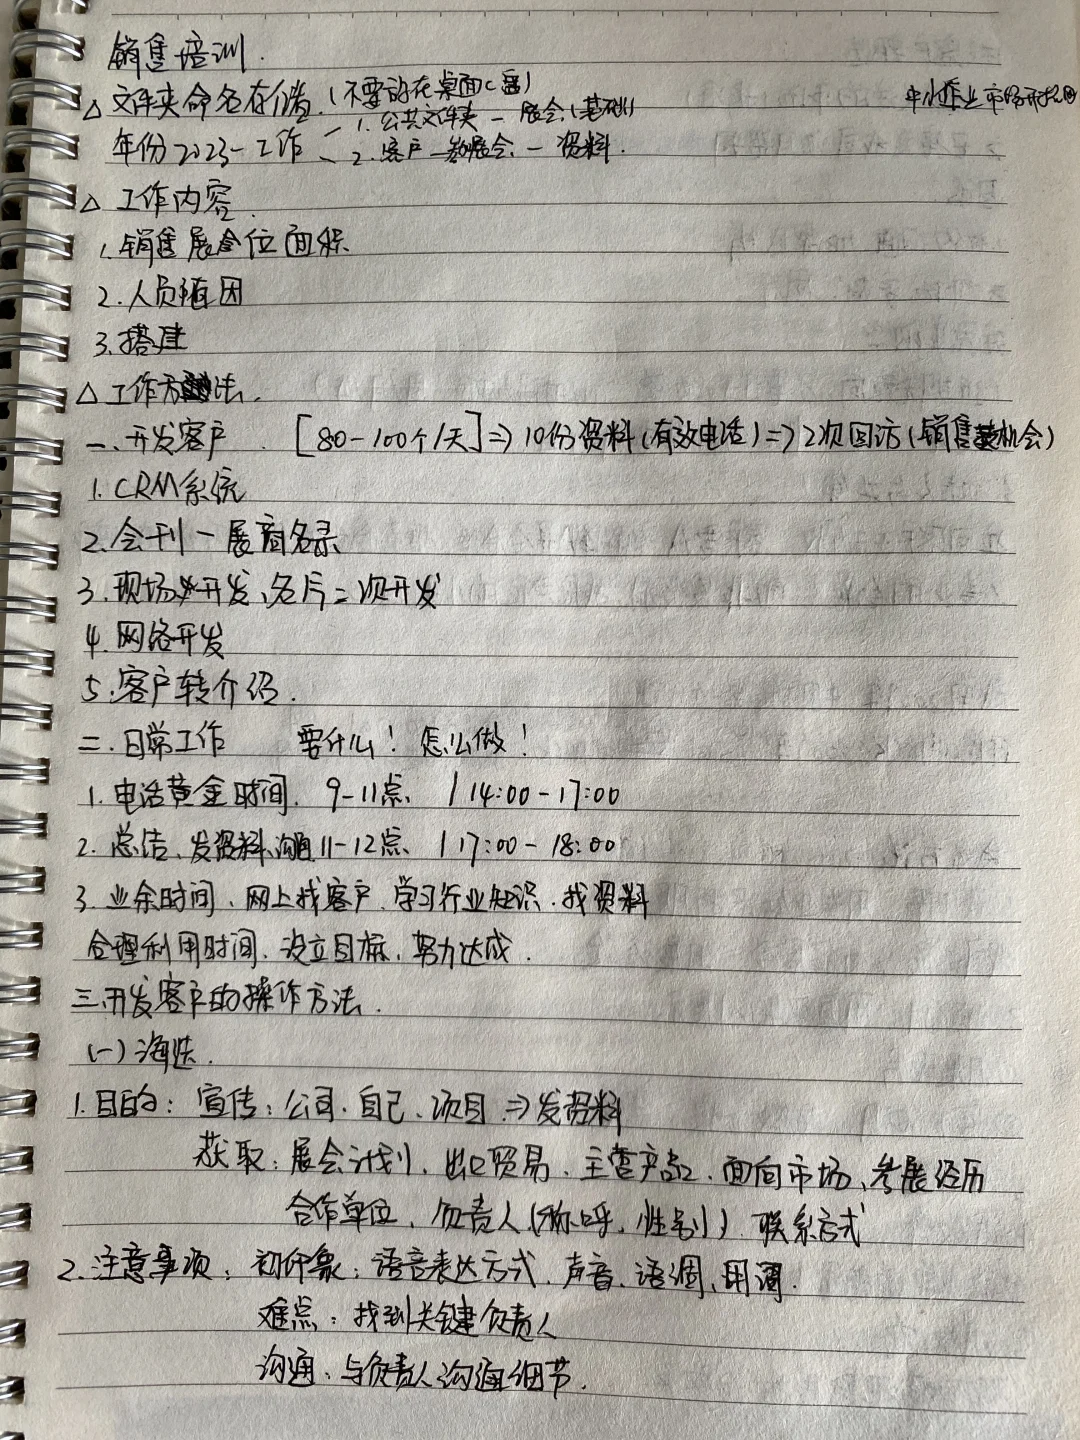 销售培训.
△ 文件夹命名存储.(不要放在桌面C盘)
中小企业市场开拓
年份2023-工作 - 1. 公共文件夹 - 展会(基础)
- 2. 客户-参展会 - 资料.
△ 工作内容.
1. 销售展会位面积
2. 人员
3. 搭建
△ 工作方法.
一. 开发客户. [80-100个/天]⇒10份资料(有效电话)⇒2次回访(销售机会)
1. CRM系统
2. 会刊一展商名录
3. 现场开发、名片二次开发
4. 网络开发
5. 客户转介绍.
二. 日常工作 要什么! 怎么做!
1. 电话黄金时间. 9-11点. / 14:00-17:00
2. 总结、发资料、沟通 11-12点. / 17:00-18:00
3. 业余时间、网上找客户、学习行业知识、找资料
合理利用时间、设立目标、努力达成.
三. 开发客户的操作方法.
(一) 海选.
1. 目的: 宣传: 公司、自己、项目 ⇒发资料
获取: 展会计划、出口贸易、主营产品、面向市场、参展经历
合作单位、负责人(称呼、性别)、联系方式
2. 注意事项: 初印象: 语言表达方式、声音、语调、用词.
难点: 找到关键负责人
沟通: 与负责人沟通细节.